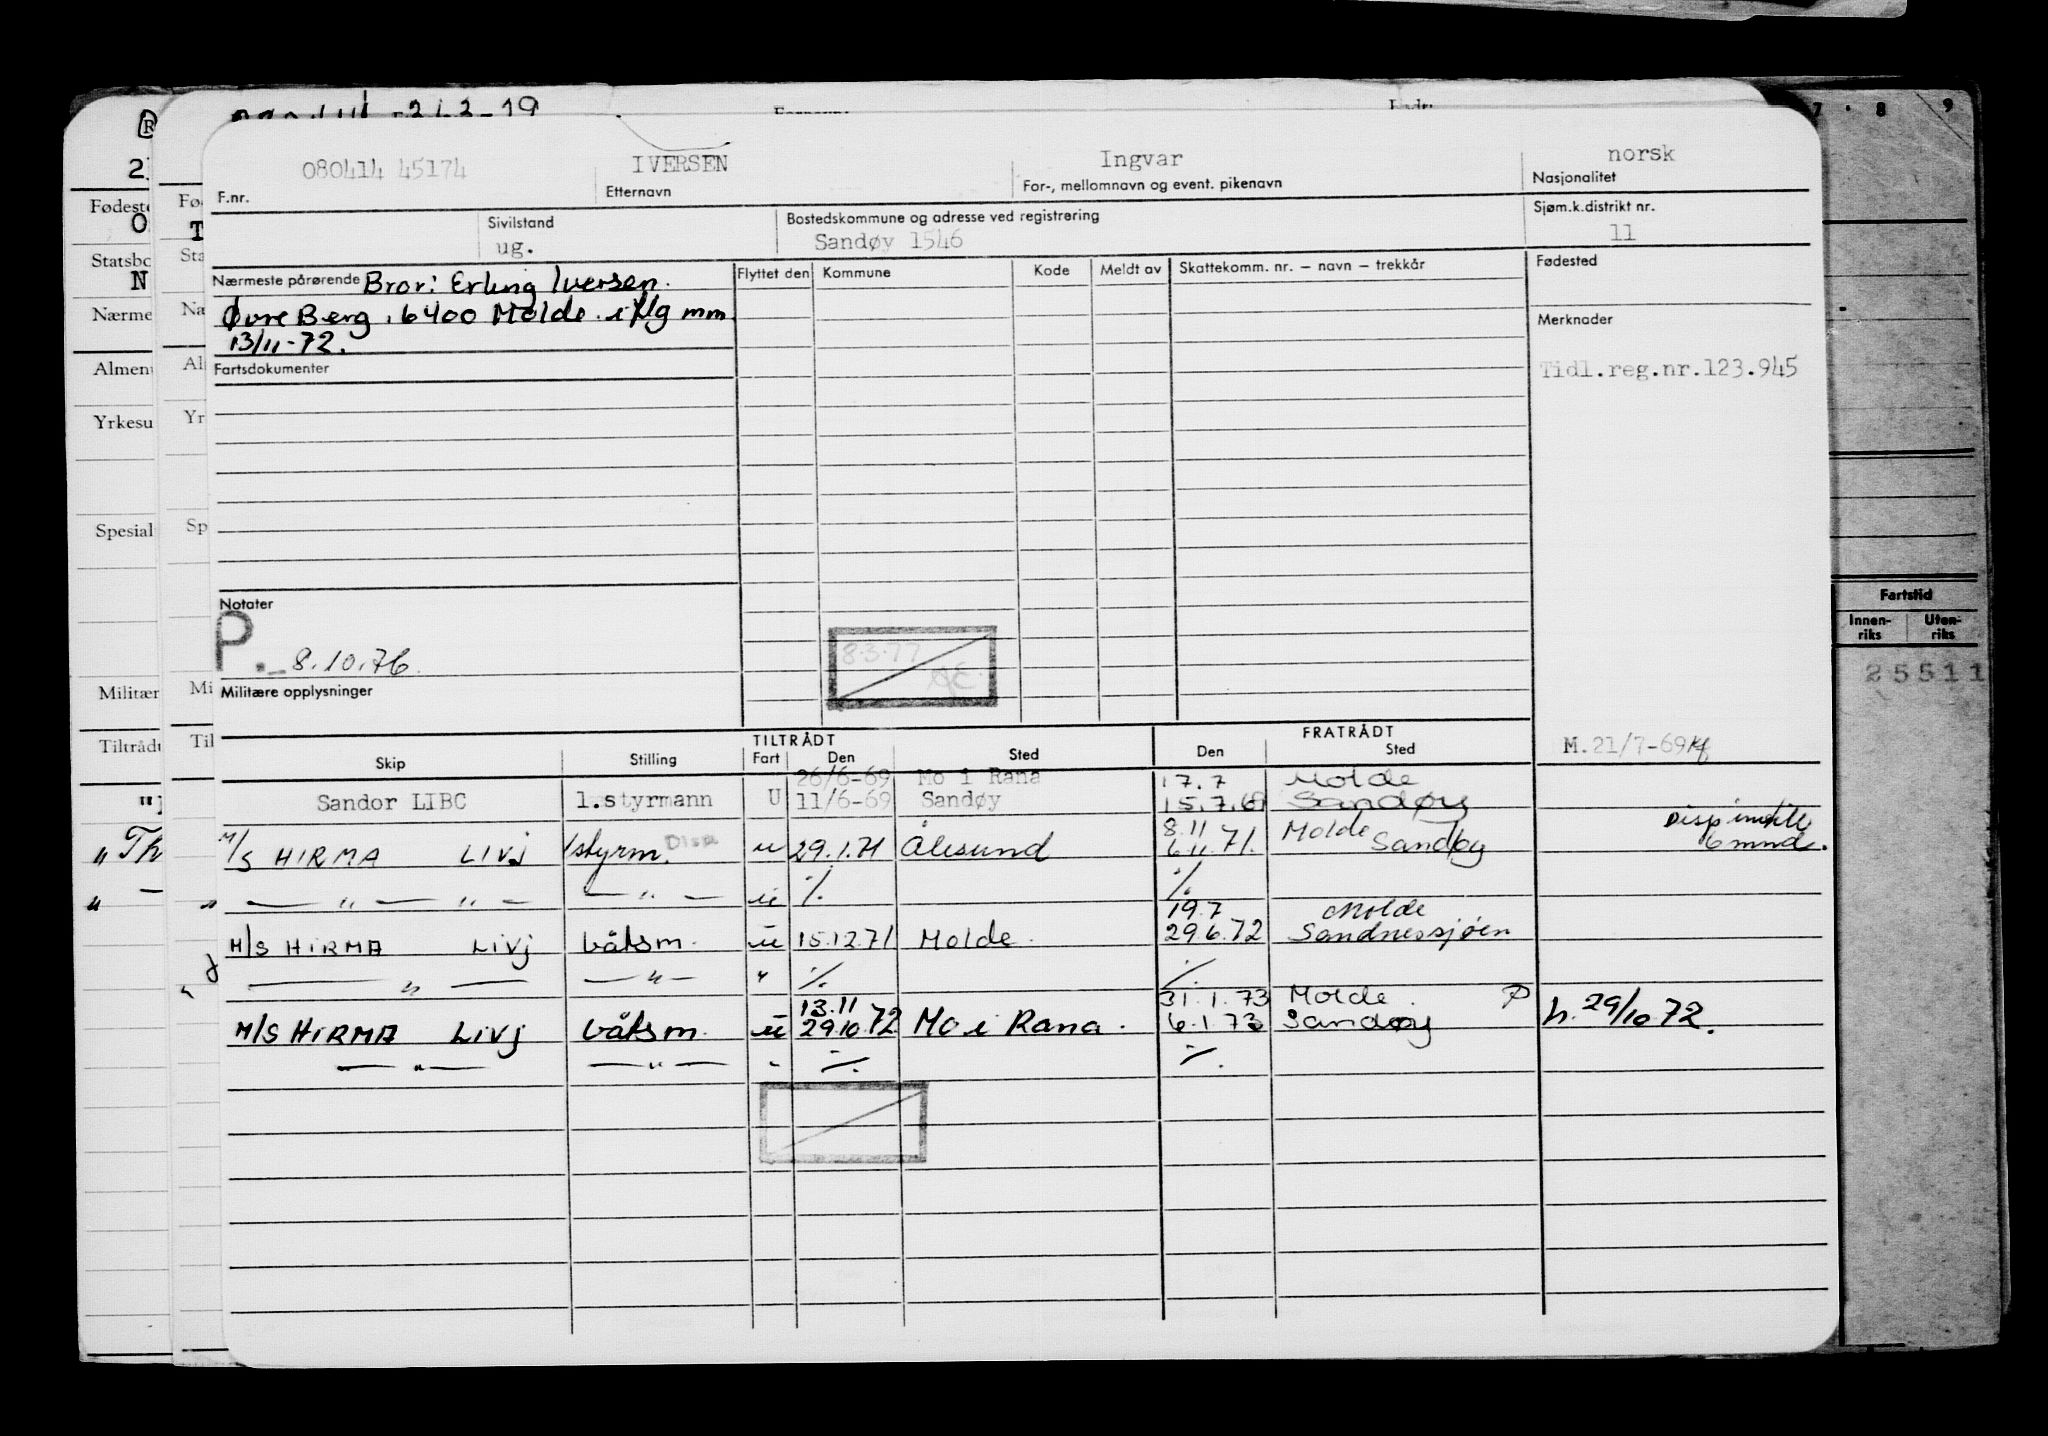 7 · 8 9
080414 45174 IVERSEN Ingvar norsk
F.nr. Etternavn For-, mellomnavn og event. pikenavn Nasjonalitet
Sivilstand Bostedskommune og adresse ved registrering Sjøm.k.distrikt nr.
ug. Sandøy 1546 11
Nærmeste pårørende Bror: Erling Iversen. Flyttet den Kommune Kode Meldt av Skattekomm. nr. – navn – trekkår Fødested
Øvre Berg, 6400 Molde. mm.
13/11-72. Merknader
Fartsdokumenter Tidl.reg.nr.123.945
Fartstid
Innen-riks Uten-riks
25511
Notater
P.- 8.10.76. 8.3.77
Militære opplysninger
TILTRÅDT FRATRÅDT M.21/7-69
Skip Stilling Fart Den Sted Den Sted
26/6-69 Mo i Rana 17.7 Molde
Sandor LIBC 1.styrmann U 11/6-69 Sandøy 15.7.69 Sandøy
8.11 Molde Disp
M/S HIRMA LIVJ 1styrm. Disp u 29.1.71 Ålesund 6.11.71. Sandøy 6 mnd.
— " — " — — " — u ./. ./.
19.7 Molde
M/S HIRMA LIVJ båtsm. u 15.12.71 Molde. 29.6.72 Sandnessjøen
— " — — " — " ./. ./.
13.11 31.1.73 Molde. P
M/S HIRMA LIVJ båtsm. u 29.10.72 Mo i Rana. 6.1.73 Sandøy h. 29/10 72.
— " — — " — " ./. ./.